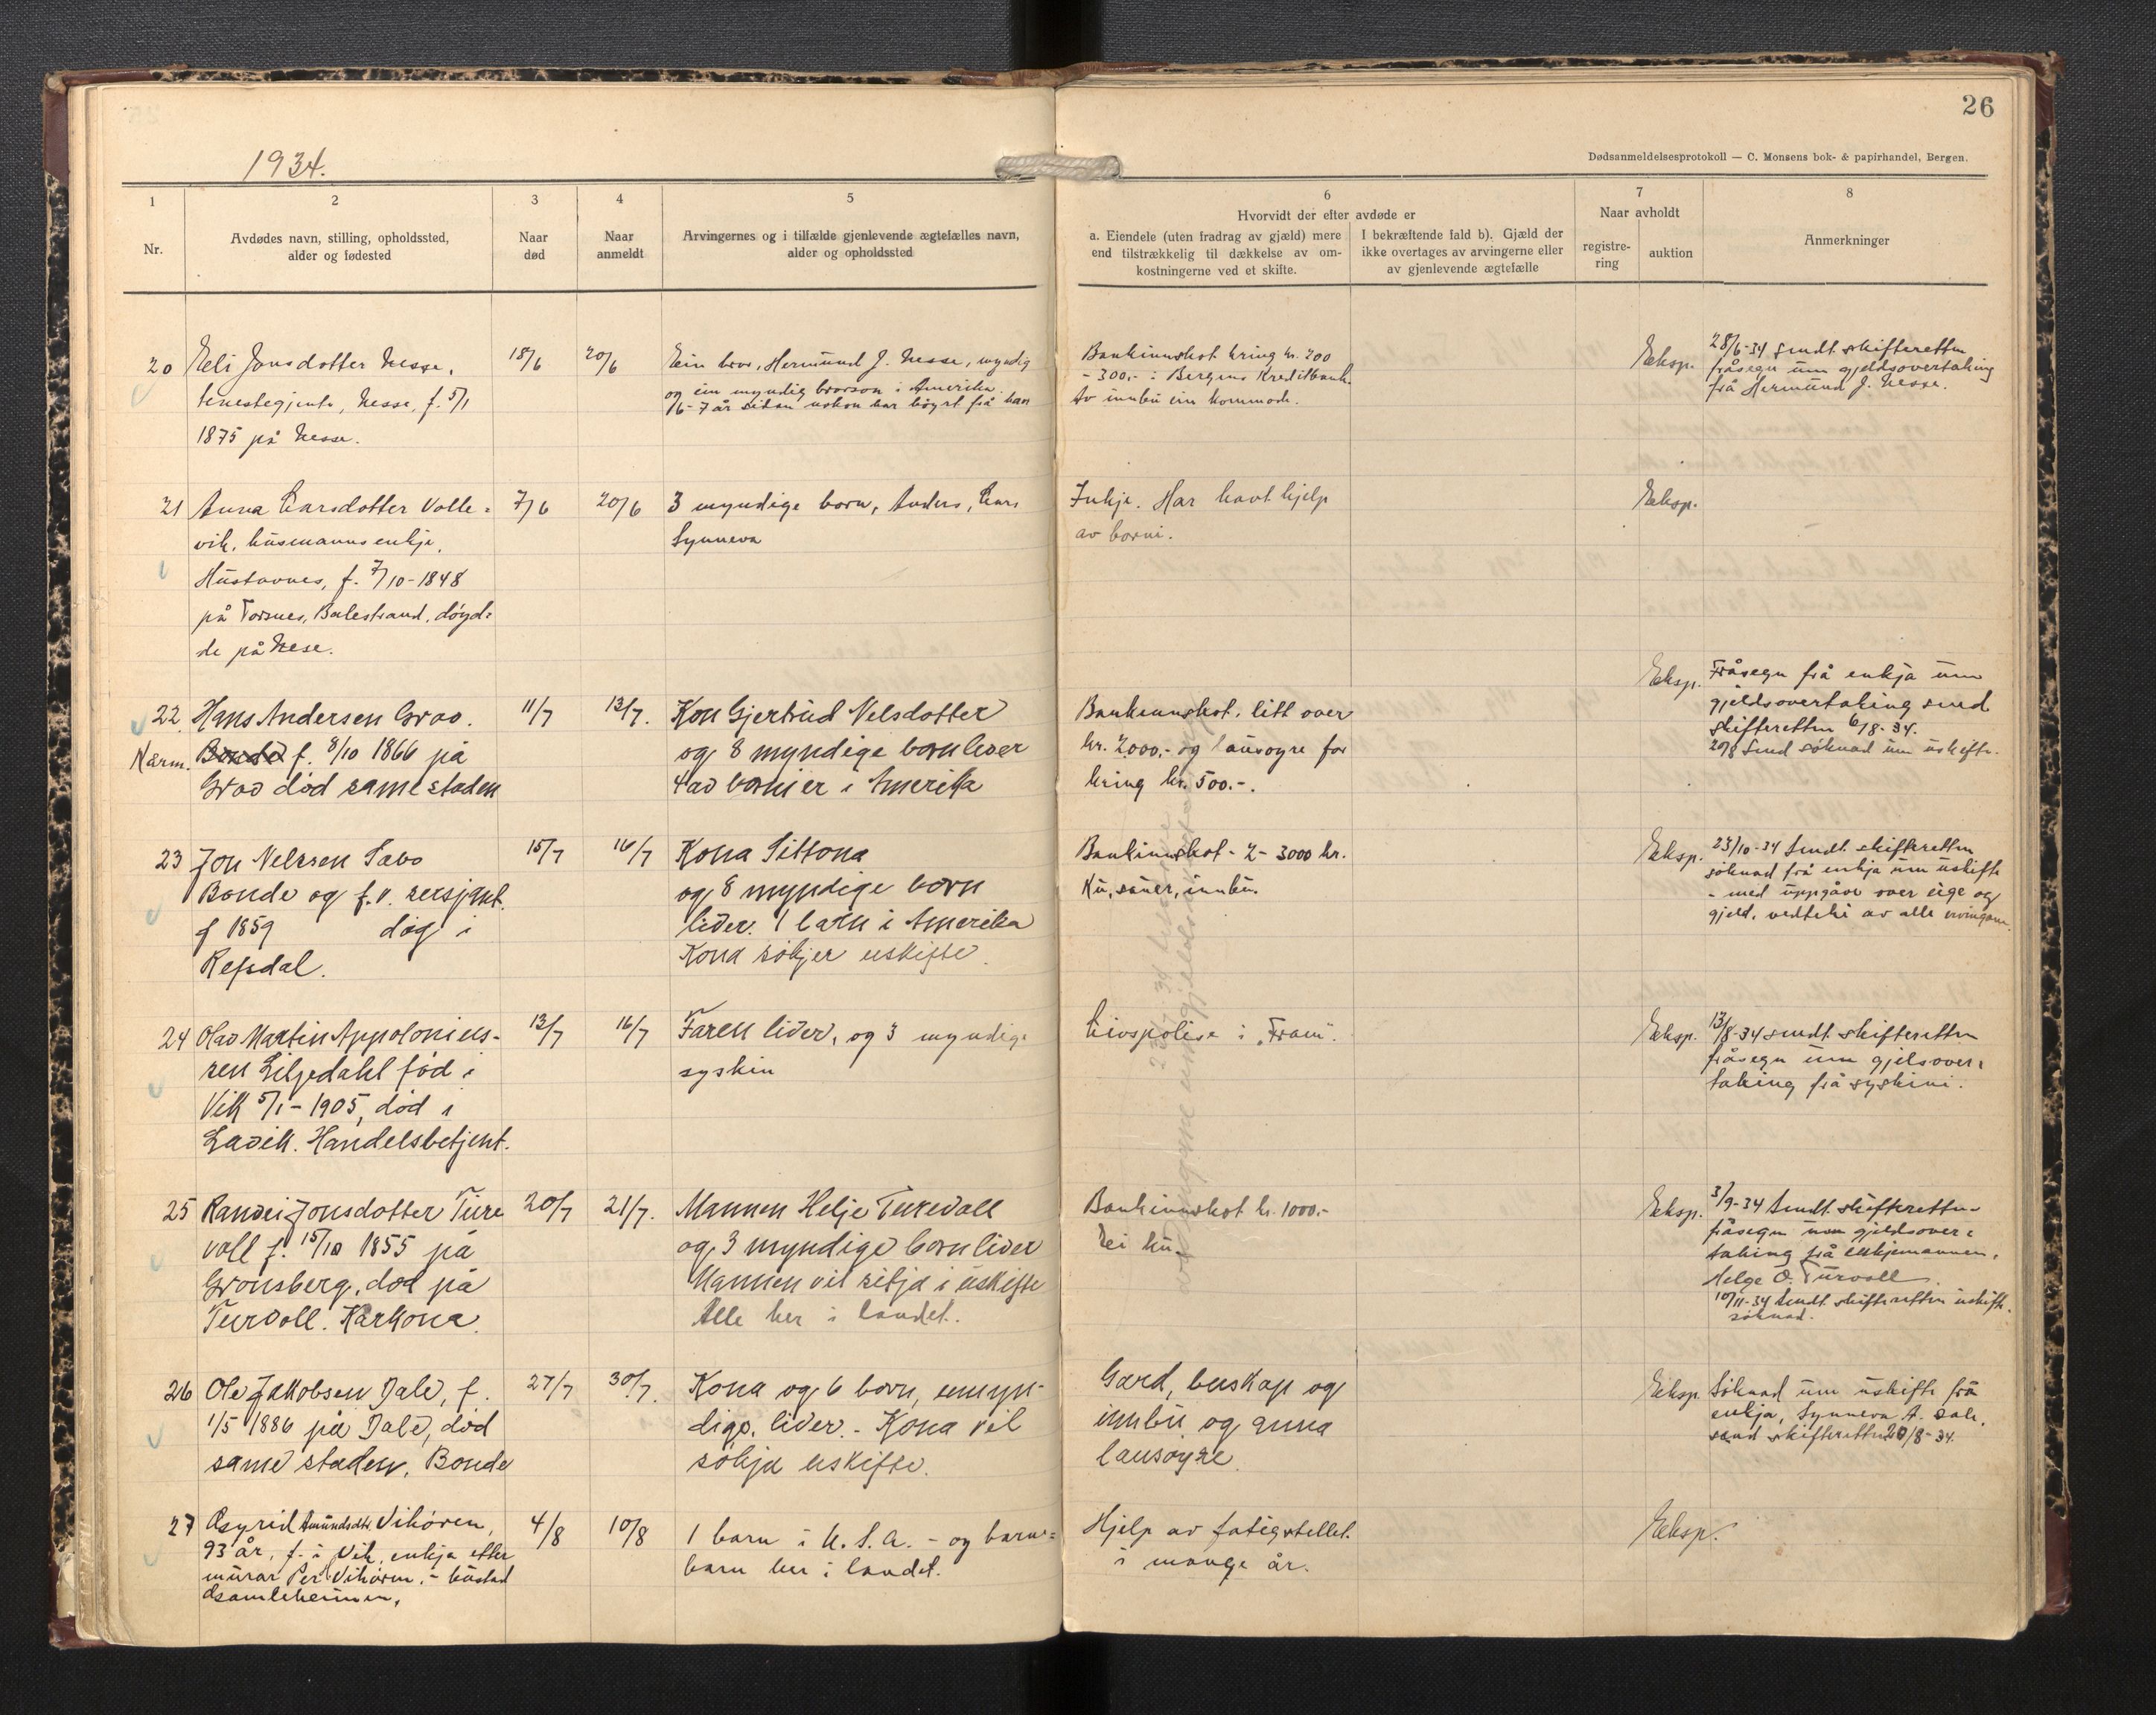 26
1934.
Dødsanmeldelsesprotokoll — C. Monsens bok- & papirhandel, Bergen.
1
2
3
4
5
6
7
8
Nr.
Avdødes navn, stilling, opholdssted,
alder og fødested
Naar
død
Naar
anmeldt
Arvingernes og i tilfælde gjenlevende ægtefælles navn,
alder og opholdssted
Hvorvidt der efter avdøde er
a. Eiendele (uten fradrag av gjæld) mere
end tilstrækkelig til dækkelse av om-
kostningerne ved et skifte.
I bekræftende fald b). Gjæld der
ikke overtages av arvingerne eller
av gjenlevende ægtefælle
Naar avholdt
registre-
ring
auktion
Anmerkninger
20
Eli Jonsdotter Nesse,
tenestegjente, Nesse, f. 5/1
1875 på Nesse.
18/6
20/6
Ein bror, Hermund J. Nesse, myndig
og ein myndig brorson i Amerika.
6-7 år sidan nokon har høyrt frå han
Bankinnskot kring kr. 200
- 300,- i Bergens Kreditbank.
Av innbu ein kommode.
Eksp.
28/6-34 sendt skifteretten
fråsegn um gjeldsovertaking
frå Hermund J. Nesse.
21
Anna Larsdotter Volle=
vik, husmannsenkje,
Hustavnes, f. 7/10-1848
på Tornes, Balestrand, døyd=
de på Nese.
7/6
20/6
3 myndige born, Anders, Lars
Synneva
Inkje. Har havt hjelp
av borni.
Eksp.
22
Hans Andersen Grov.
Kårm. Bonde f. 8/10 1866 på
Grov død same staden
11/7
13/7.
Kon Gjertrud Nelsdotter
og 8 myndige born lever
4 av borni er i Amerika
Bankinnskot, litt over
kr. 2000.- og lausøyre for
kring kr. 500.-.
Eksp.
Fråsegn frå enkja um
gjeldsovertaking send
skifteretten 6/8-34.
20/8 Send søknad um uskifte.
23
Jon Nelssen Tavo
Bonde og f.v. sersjant.
f 1859 døg i
Refsdal.
15/7
16/7
Kona
og 8 myndige born
lever. 1 barn i Amerika
Kona søkjer uskifte.
Bankinnskot - 2-3000 kr.
Ku, sauer, innbu.
Eksp.
23/10-34 Sendt skifteretten
søknad frå enkja um uskifte
- med uppgåve over eige og
gjeld, vedteke av alle ervingane.
24
Olav Martin Appolonius-
sen Liljedahl fød i
Vik 5/1-1905, død i
Lavik. Handelsbetjent.
13/7
16/7
Faren lever, og 3 myndige
syskin
Livspolise i "Fram".
Eksp.
13/8-34 sendt skifteretten
fråsegn um gjelsover=
taking frå syskini.
25
Randei Jonsdotter Ture
voll f. 15/10 1855 på
Grønsberg, død på
Turvoll. Kårkona.
20/7
21/7.
Mannen Helje Turevoll
og 3 myndige born lever
Mannen vil sitja i uskifte
Alle her i landet.
Bankinnskot kr. 1000.-
Ei ku.
Eksp.
3/9-34 Sendt skifteretten
fråsegn um gjeldsover=
taking frå enkjemannen,
Helge O. Turvoll.
10/11-34 Sendt skifteretten uskifte
søknad.
26
Ole Jakobsen Dale, f.
1/5 1886 på Dale, død
same staden. Bonde
27/7
30/7.
Kona og 6 born, umyn-
dige, lever. - Kona vil
søkja uskifte.
Gard, buskap og
innbu og anna
lausøyre.
Eksp.
Søknad um uskifte frå
enkja, Synneva A. Dale,
send skifteretten 20/8-34.
27
Asyrid Amundsdtr. Vikøren,
93 år, f. i Vik, enkja etter
murar Per Vikøren, - bustad
Gamleheimen,
4/8
10/8
1 barn i U.S.A. - og barne=
barn her i landet.
Hjelp av fatigstellet
i mange år.
Eksp.